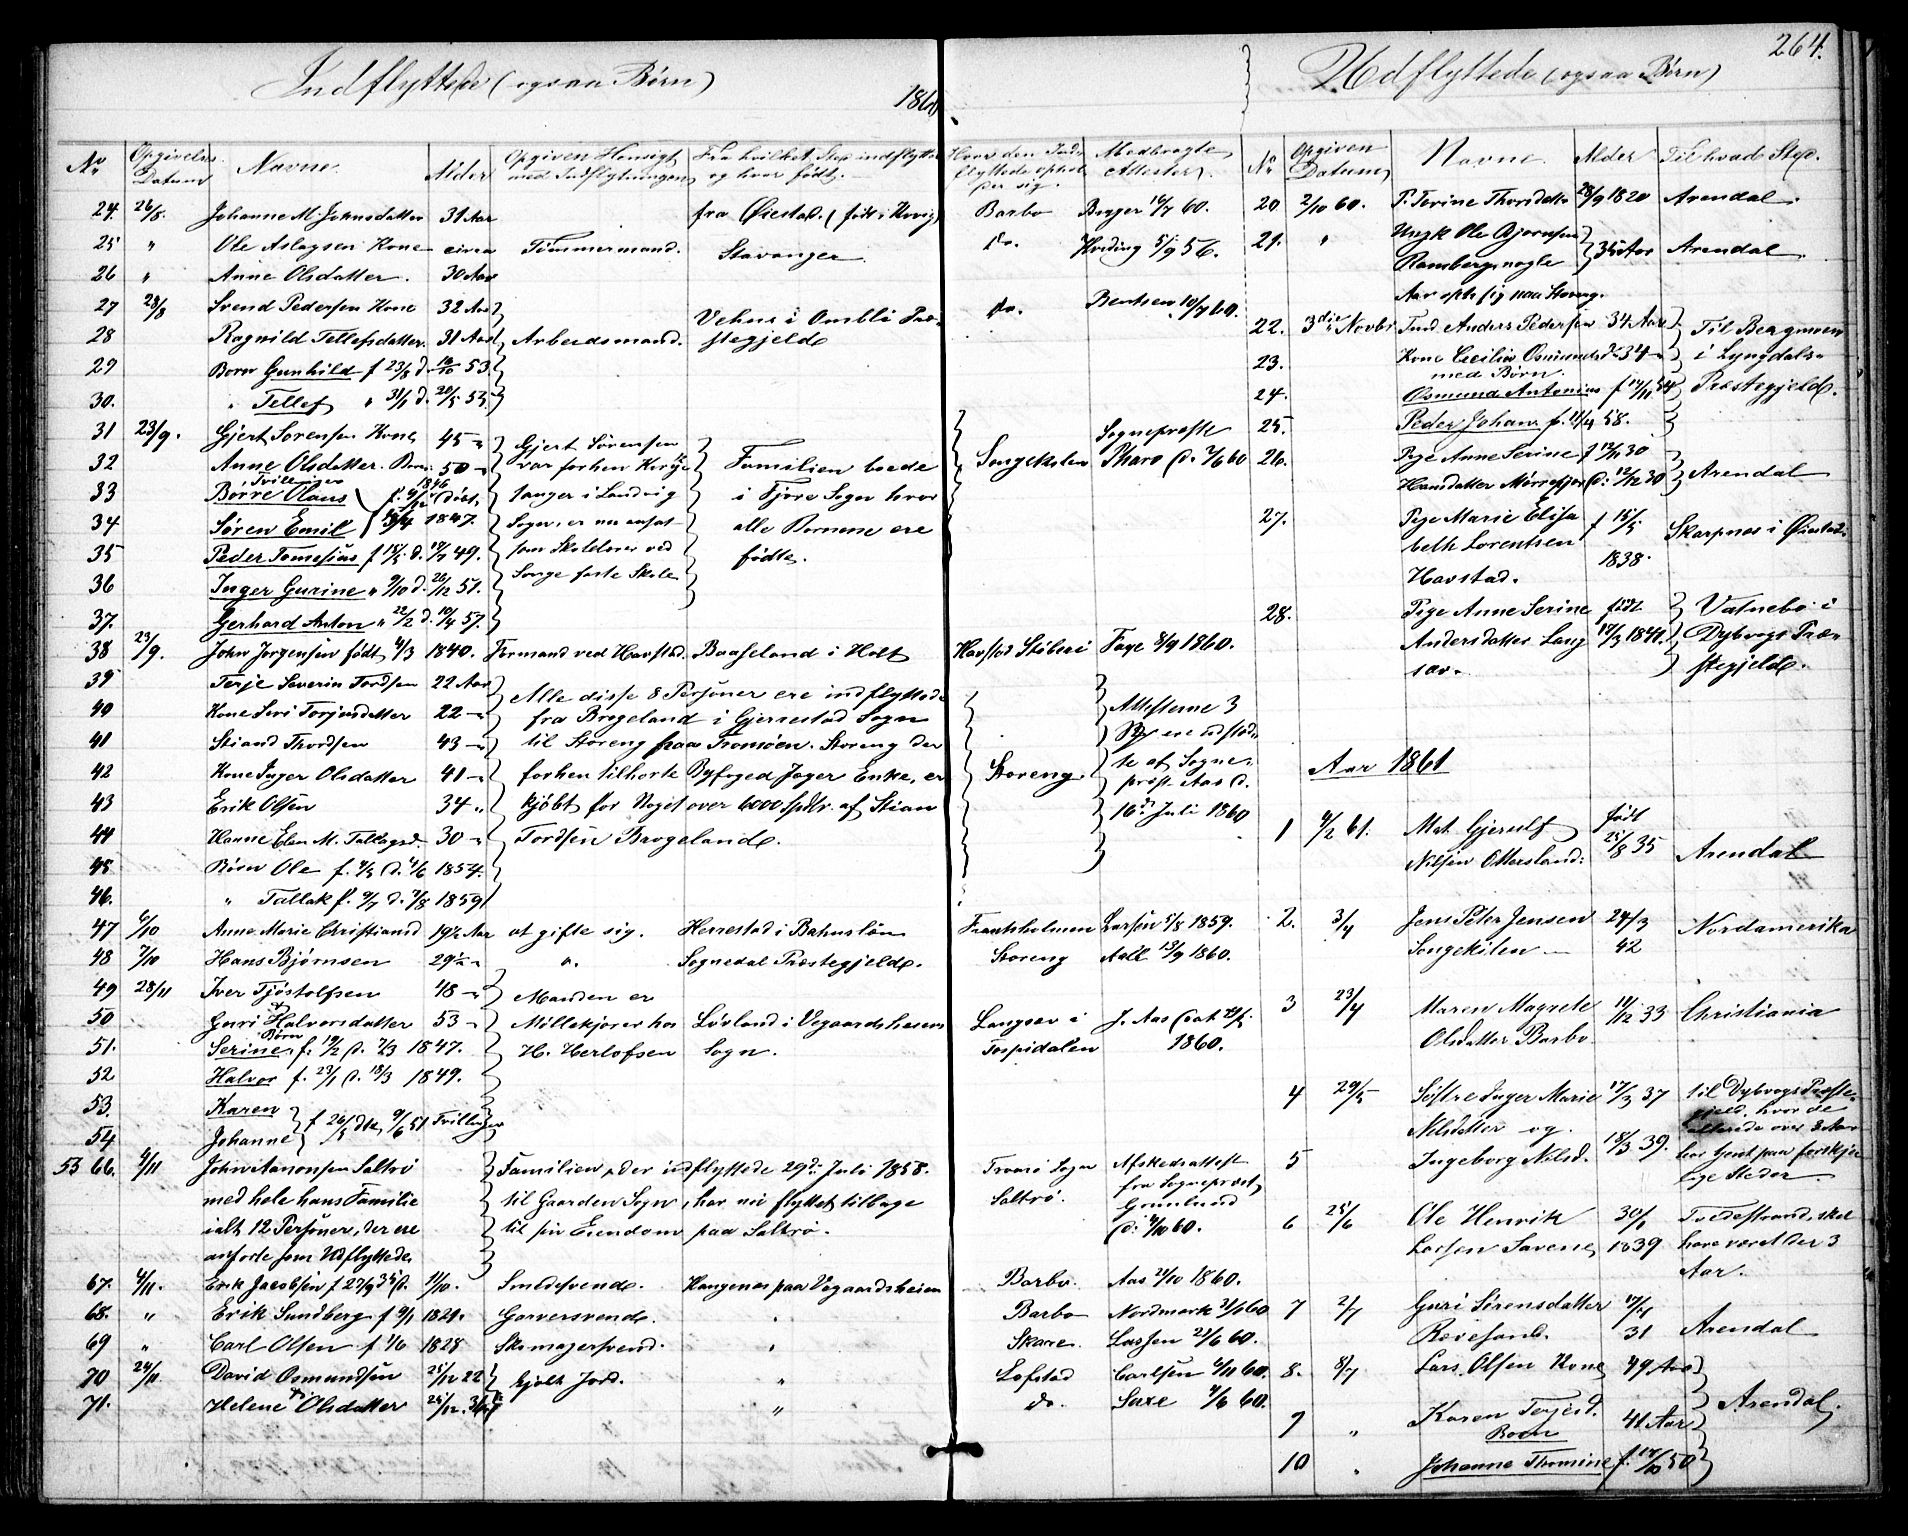 264.
Indflyttede (ogsaa Børn)
1860
No
Opgivelses Datum
Navne
Alder
Opgiven Hensigt med Indflytningen
Fra hvilket Sted indflyttet og hvor født.
Hvor den Indflyttede opholder sig.
Medbragte Attester.
24. 26/8. Johanne M. Johnsdatter 31 Aar fra Øiestad. (født i Hovig) Barbo Buger 16/7 60.
25 " Ole Aslagsen Kone circa Tømmermand. Stavanger. do. Hviding 5/9 56.
26 " Anne Olsdatter. 30 Aar
27 28/8 Svend Pedersen Kone 32 Aar Vehus i Ombli Præ- do. Bentsen 10/7 60.
28 Ragnild Tellefsdatter. 31 Aar Arbeidsmand. stegjeld
29 Børn Gunhild f 23/8 d. 16/10 53
30. " Tellef " 31/1 d. 20/5 55.
31 23/9. Gjert Sørensen Kone 45 " Gjert Sørensen Sogneprest
32 Anne Olsdatter. Børn: 50 " var forhen Kirke- Familien boede Songekilen Tharo d. 7/6 60
Tvillinger 1846
33 Børre Olaus f. 9/12 døbt sanger i Landvig i Fjære Sogn hvor
34 Søren Emil 18/4 1847. Sogn, er nu ansat alle Børnene ere
35 Peder Tomesius f 15/5 d. 17/7 49. som Skolelærer ved fødte.
36 Inger Gurine " 9/10 d. 26/12 51. Songe faste Skole
37. Gerhard Anton " 22/2 d. 10/4 57.
38 23/9. John Jørgensen født 4/3 1840. Formand ved Havstad. Baaseland i Holt Havstad Støberi Faye 8/9 1860.
39 Terje Severin Tordsen 22 Aar Alle disse 8 Personer ere indflyttede
40 Kone Siri Torjusdatter 22 " fra Brøgeland i Gjerrestad Sogn Attesterne 3
41 Stiand Thordsen 43 " til Støreng paa Tromøen. Støreng der ere udsted-
42 Kone Inger Olsdatter 41 " forhen tilhørte Byfoged Jager Enke, er Støreng. te af Sogne-
43 Erik Olsen 34 " kjøbt for Noget over 6000 Spdlr. af Stian prest Aas d.
44 Hanne Elen M. Tallagsd. 30 " Tordsen Brøgeland. 16de Juli 1860
45 Børn Ole f. 4/3 d. 4/6 1854.
46. " Tallak f. 9/7 d. 7/8 1859
47 6/10 Anne Marie Christiansd 19½ Aar at gifte sig. Herrestad i Bahuslän Frantholmen Larsen 5/8 1859.
48 7/10 Hans Bjørnsen 29½ " ". Sognedal Præstegjeld. Støreng Aall 13/9 1860.
49 28/11 Iver Tjøstolfsen 48 " Manden er
50 Guri Halvorsdatter 53 " Møllekjører hos Løvland i Vegaardsheiens Langsæv i J. Aas
Børn
51. Serine f. 19/2 d. 7/3 1847. H. Herlofsen Sogn. Hospidalen 1860.
52 Halvor f. 23/1 d. 18/3 1849.
53. Karen f 26/5 dbt. 9/6 51 Tvillinger
54 Johanne
55 66. 4/11 Saltrø Familien, der indflyttede 29de Juli 1858. Tromø Sogn Afskedsattest
med hele hans Familie til Gaarden Sogn, har nu flyttet tilbage Saltrø. fra Sogneprest
ialt 12 Personer, der ere til sin Eiendom paa Saltrø. Grønlund
anførte som Udflyttede d. 4/10 60.
67. 4/11. Erik Jacobsen f 27/9 35 d. 11/10. Smedesvend. Hangenes paa Vegaardsheien Barbo. Aas 21/10 1860.
68. " Erik Sundberg f 9/1 1821. Garversvend. " Barbo Nordmark 31/8 60
69 " Carl Olsen f 1/6 1828 Skomagersvend. " Skare. Lassen 23/6 60.
70 24/11 David Osmundsen 25/12 22 kjøbt Jord. " Lofstad Carlsen 6/11 60.
71. Helene Olsdatter 25/12. " do. Saxe 4/6 60.
Udflyttede (ogsaa Børn)
Nr
Opgiven Datum
Navne.
Alder
Til hvad Sted.
20 2/10 60. P. Torine Thorsdatter 28/9 1820 Arendal.
21. " Ungk Ole Bjørnsen
Ramberg, nogle 36 Aar Arendal
Aar opholdt sig paa Støreng.
22. 3die Novbr Tind. Anders Pedersen 34 Aar Til Bergmoen
23. Kone Cecilia Osmundsd. 34 " i Lyngdals-
med Børn.
24. Osmund Antonius f 14/11 54 Præstegjeld.
25. Peder Johan f. 11/4 58.
26. Pige Anne Serine f 12/11 30
Hansdatter Mørefjær d. 12/12 30 Arendal
27. Pige Marie Elisa- f 15/5
beth Lorentsen Skarpnes i Øiestad
Havstad. 1838.
28. Pige Anne Serine født Vatnebo i
Andersdatter Lang 18/3 1841. Dybvogs Præ-
sæv. stegjeld.
Aar 1861
1 4/2 61. Mat. Gjerulf født
Nilsen Ottersland: 25/8 35 Arendal
2. 3/4 Jens Peter Jensen 24/3 Nordamerika
Songekilen 42
3 23/4 Maren Magrete 11/12 33 Christiania
Olsdatter Barbo
4 29/5 Søstre Inger Marie 17/3 37 til Dybvogs Præste-
gjeld, hvor de
Nilsdatter og. allerede over 3 Aar
5 Ingeborg Nilsd. 18/3 39. har tjent paa forskjel-
lige Steder.
6 25/6 Ole Henrik 30/1 Tvedestrand, skal
Larsen Savene, 1839 have været der 3
Aar.
7 2/7 Guri Sørensdatter 17/4
Revesand. 31 Arendal
8. 8/7 Lars Olsen Kone 49 Aar
9 " Karen Terjesd. 41 Aar Arendal.
Børn
10 " Johanne Thomine f. 18/10 50